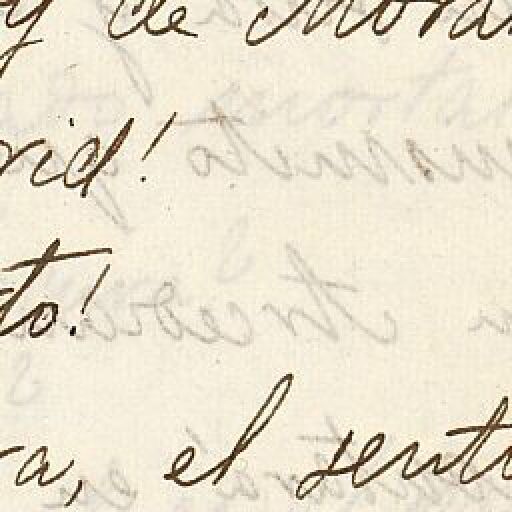 y de Mora
rid!
to!
ra, el senti